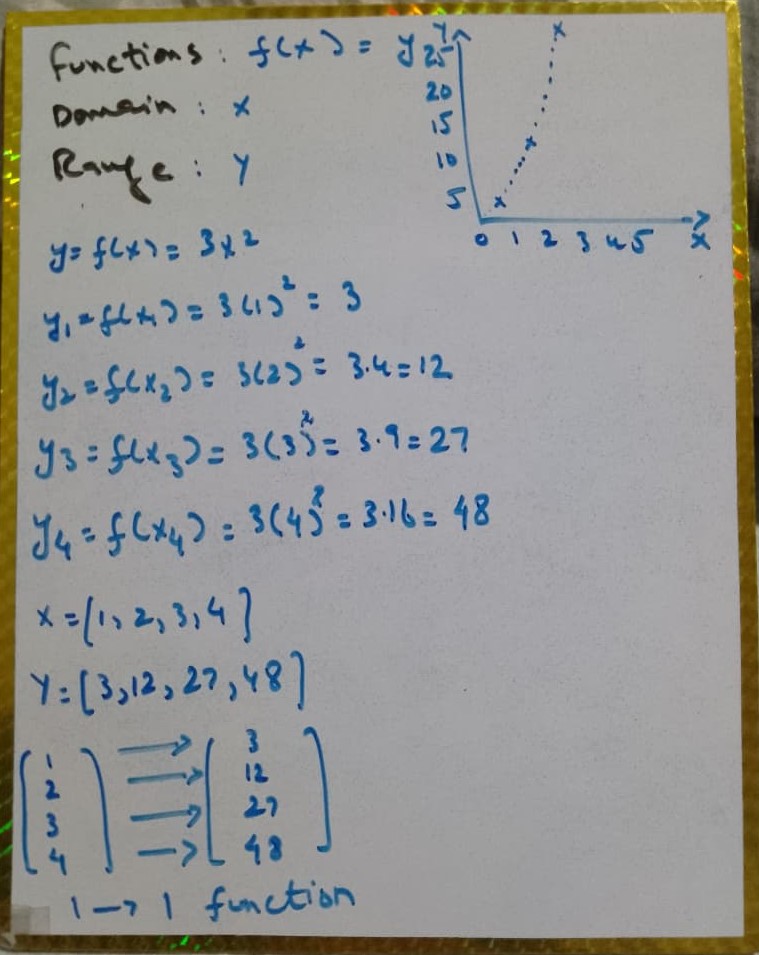 Functions: f(x) = y
Domain: x
Range: Y
Y
25
20
15
10
5
0 1 2 3 4 5 X
y = f(x) = 3x²
y₁ = f(x₁) = 3(1)² = 3
y₂ = f(x₂) = 3(2)² = 3.4 = 12
y₃ = f(x₃) = 3(3)² = 3.9 = 27
y₄ = f(x₄) = 3(4)² = 3.16 = 48
X = [1, 2, 3, 4]
Y = [3, 12, 27, 48]
1 → 3
2 → 12
3 → 27
4 → 48
1 → 1 function